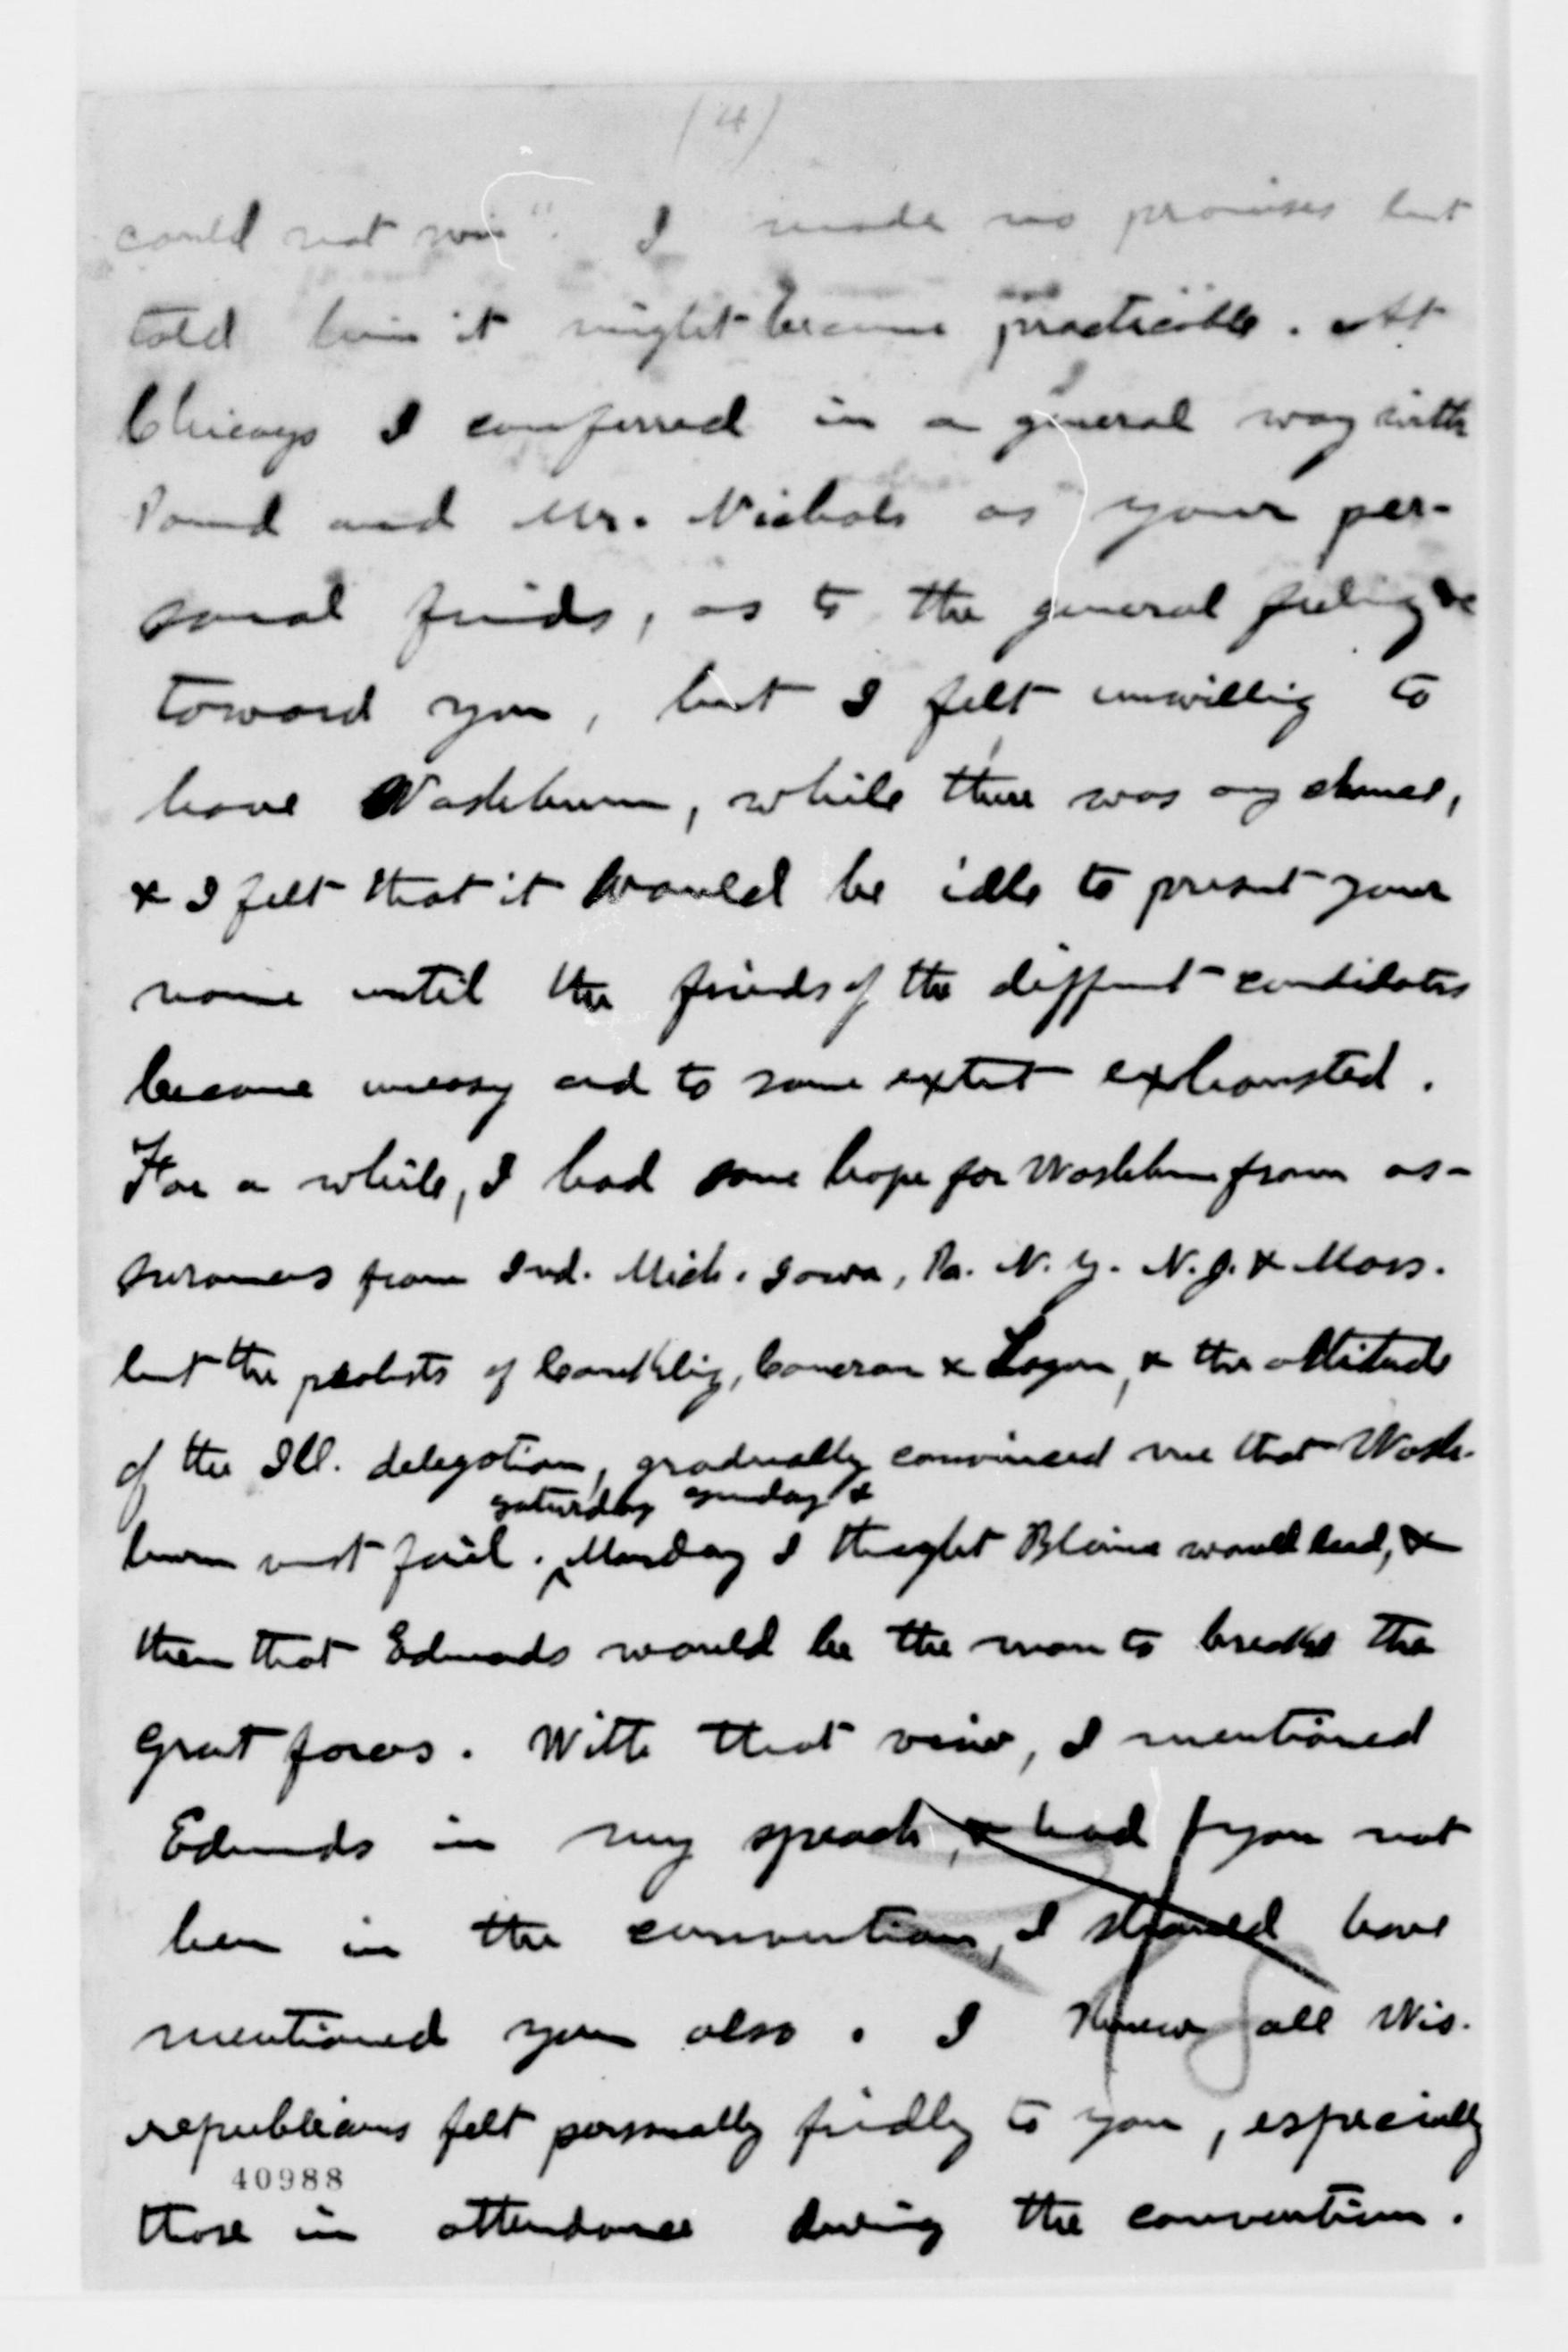 (4)
could not win". I made no promises but
told him it might become practicable. At
Chicago I conferred in a general way with
Pound and Mr. Nichols as your per-
sonal friends, as to the general feeling
toward you, but I felt unwilling to
leave Washburn, while there was any chance,
& I felt that it would be idle to present your
name until the friends of the different candidates
became uneasy and to some extent exhausted.
For a while, I had some hope for Washburn from as-
surances from Ind. Mich. Iowa, Pa. N. Y. N. J. & Mass.
but the protests of Conkling, Cameron & Logan, & the attitude
of the Ill. delegation, gradually convinced me that Wash-
saturday sunday &
burn must fail. Monday I thought Blaine would lead, &
then that Edmunds would be the man to break the
Grant forces. With that view, I mentioned
Edmunds in my speech, & had you not
been in the convention, I should have
mentioned you also. I knew all Wis.
republicans felt personally friendly to you, especially
40988
those in attendance during the convention.